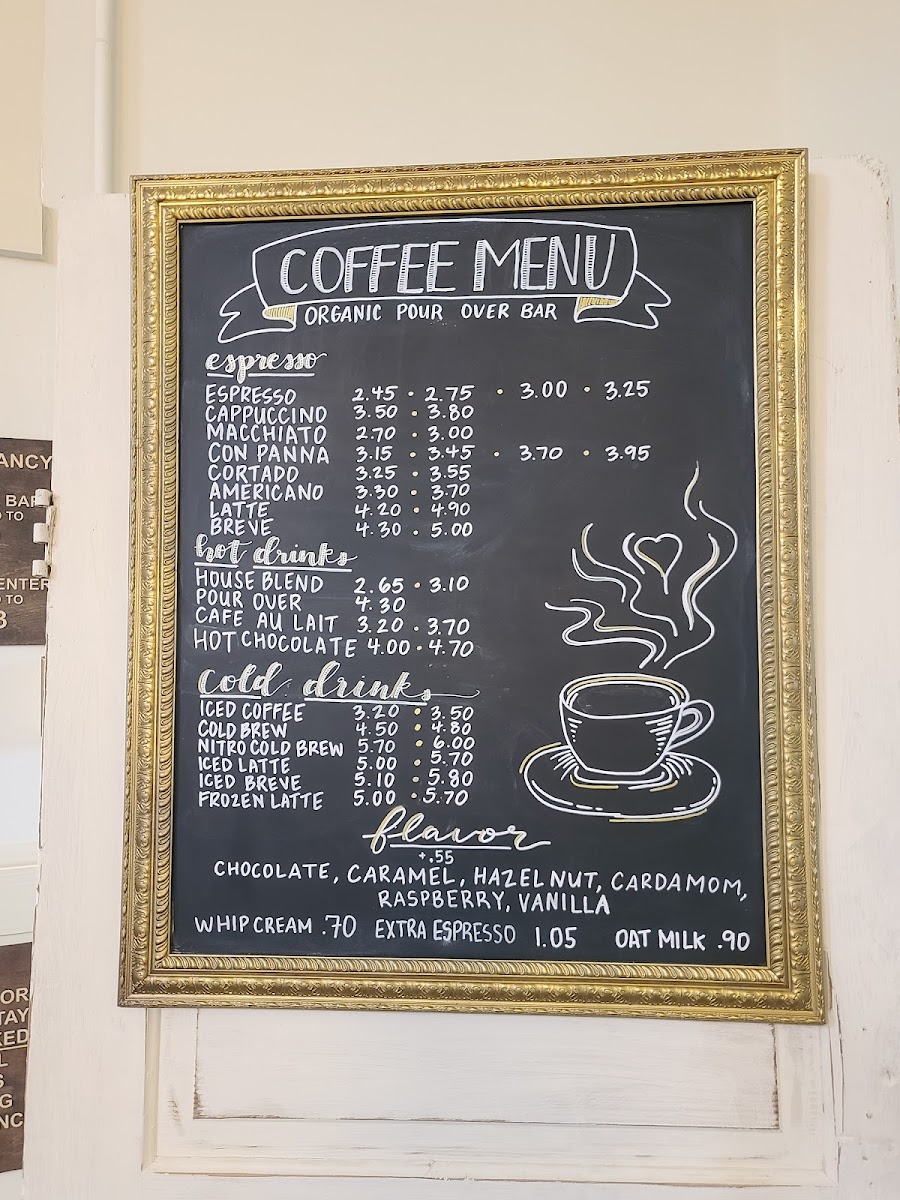 COFFEE MENU
ORGANIC POUR OVER BAR
espresso
ESPRESSO 2.45 • 2.75 • 3.00 • 3.25
CAPPUCCINO 3.50 • 3.80
MACCHIATO 2.70 • 3.00
CON PANNA 3.15 • 3.45 • 3.70 • 3.95
CORTADO 3.25 • 3.55
AMERICANO 3.30 • 3.70
LATTE 4.20 • 4.90
BREVE 4.30 • 5.00
hot drinks
HOUSE BLEND 2.65 • 3.10
POUR OVER 4.30
CAFE AU LAIT 3.20 • 3.70
HOT CHOCOLATE 4.00 • 4.70
cold drinks
ICED COFFEE 3.20 • 3.50
COLD BREW 4.50 • 4.80
NITRO COLD BREW 5.70 • 6.00
ICED LATTE 5.00 • 5.70
ICED BREVE 5.10 • 5.80
FROZEN LATTE 5.00 • 5.70
flavor
+.55
CHOCOLATE, CARAMEL, HAZELNUT, CARDAMOM,
RASPBERRY, VANILLA
WHIP CREAM .70 EXTRA ESPRESSO 1.05 OAT MILK .90
ANCY
BAR
TO
ENTER
TO
3
OR
TAY
KED
L
S
G
NC